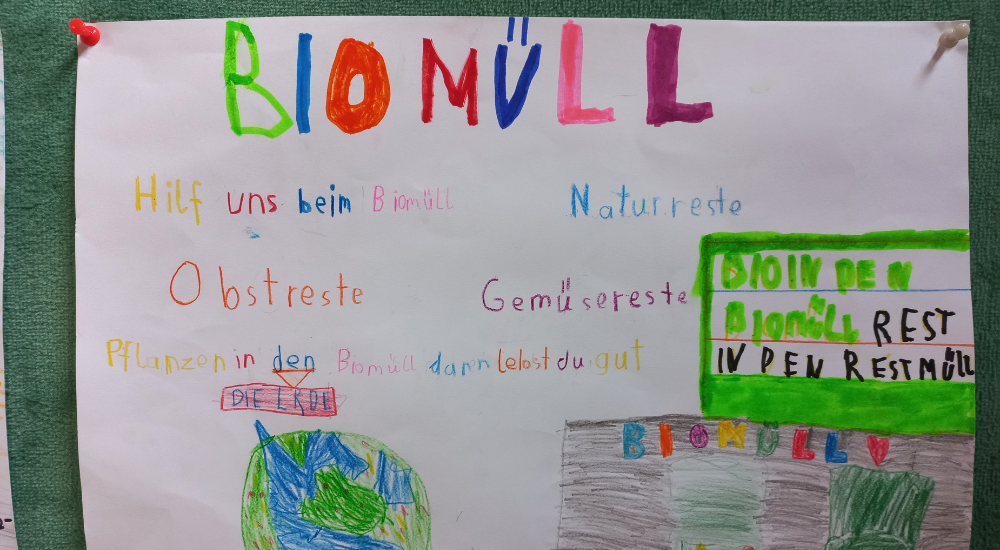 BIOMÜLL
Hilf uns beim Biomüll
Naturreste
Obstreste
Gemüsereste
BIO IN DEN
BIOMÜLL REST
IN DEN RESTMÜLL
Pflanzen in den Biomüll dann lebst du gut
DIE ERDE
BIOMÜLL